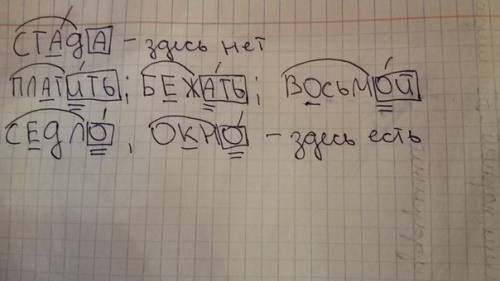 СТА́ДА - здесь нет
ПЛАТИ́ТЬ; БЕЖА́ТЬ; ВОСЬМО́Й
СЕДЛО́, ОКНО́ - здесь есть